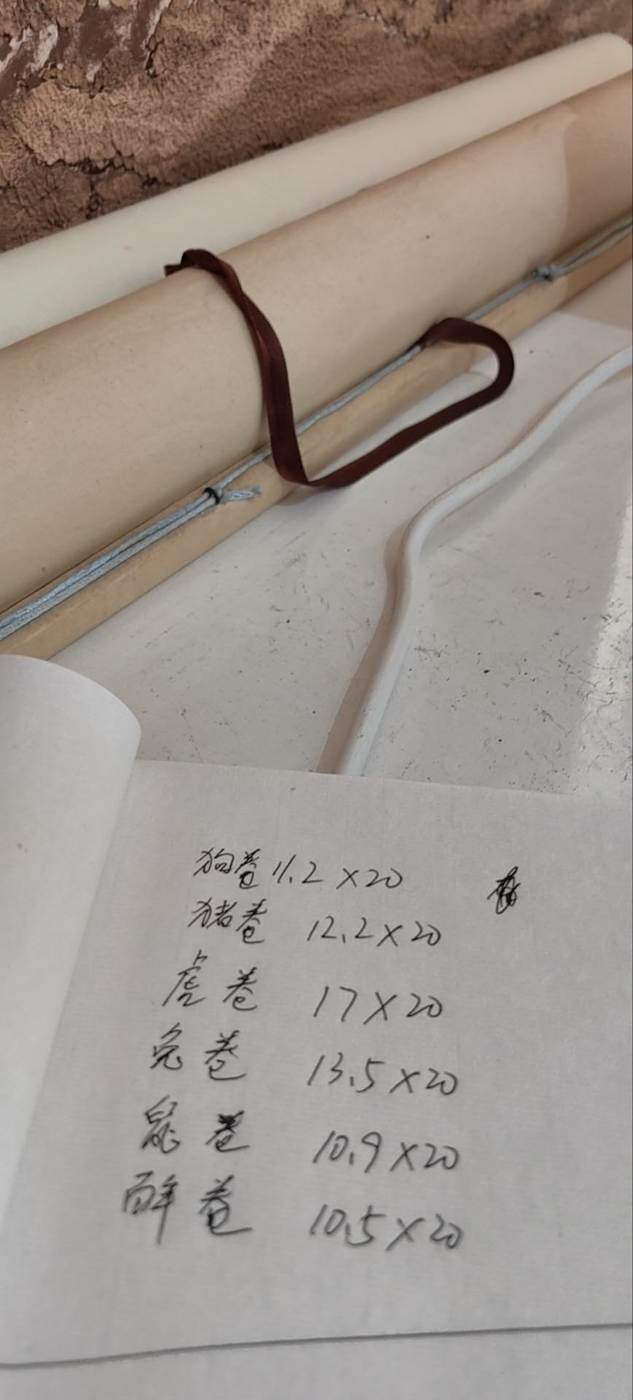 狗卷 11.2×20
猪卷 12.2×20
虎卷 17×20
兔卷 13.5×20
鼠卷 10.9×20
卷 10.5×20